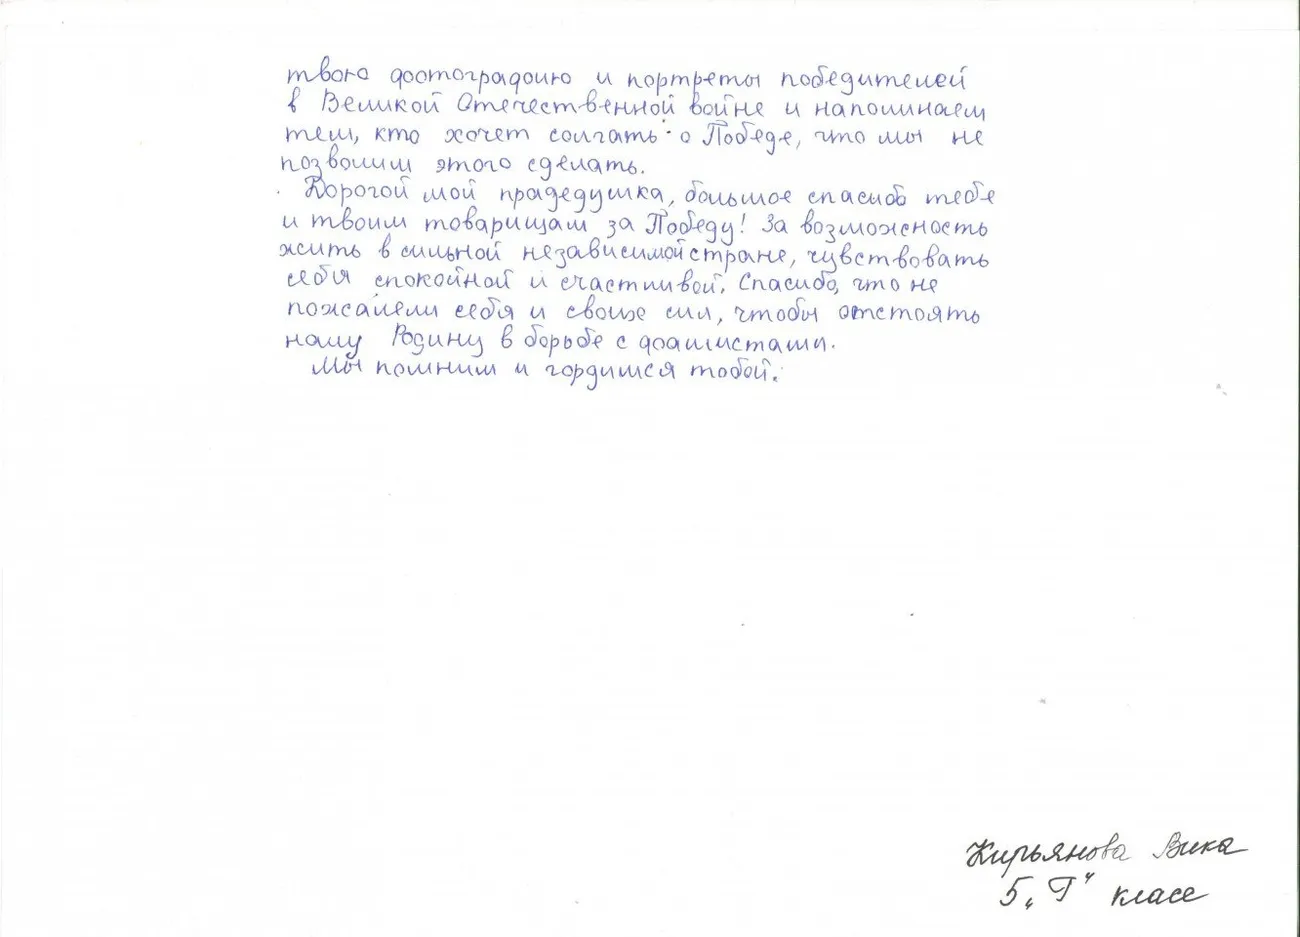 твою фотографию и портреты победителей
в Великой Отечественной войне и напоминаем
тем, кто хочет солгать о Победе, что мы не
позволим этого сделать.
Дорогой мой прадедушка, большое спасибо тебе
и твоим товарищам за Победу! За возможность
жить в сильной независимой стране, чувствовать
себя спокойной и счастливой. Спасибо, что не
пожалели себя и своих сил, чтобы отстоять
нашу Родину в борьбе с фашистами.
Мы помним и гордимся тобой.
Кирьянова Вика
5 „Г" класс